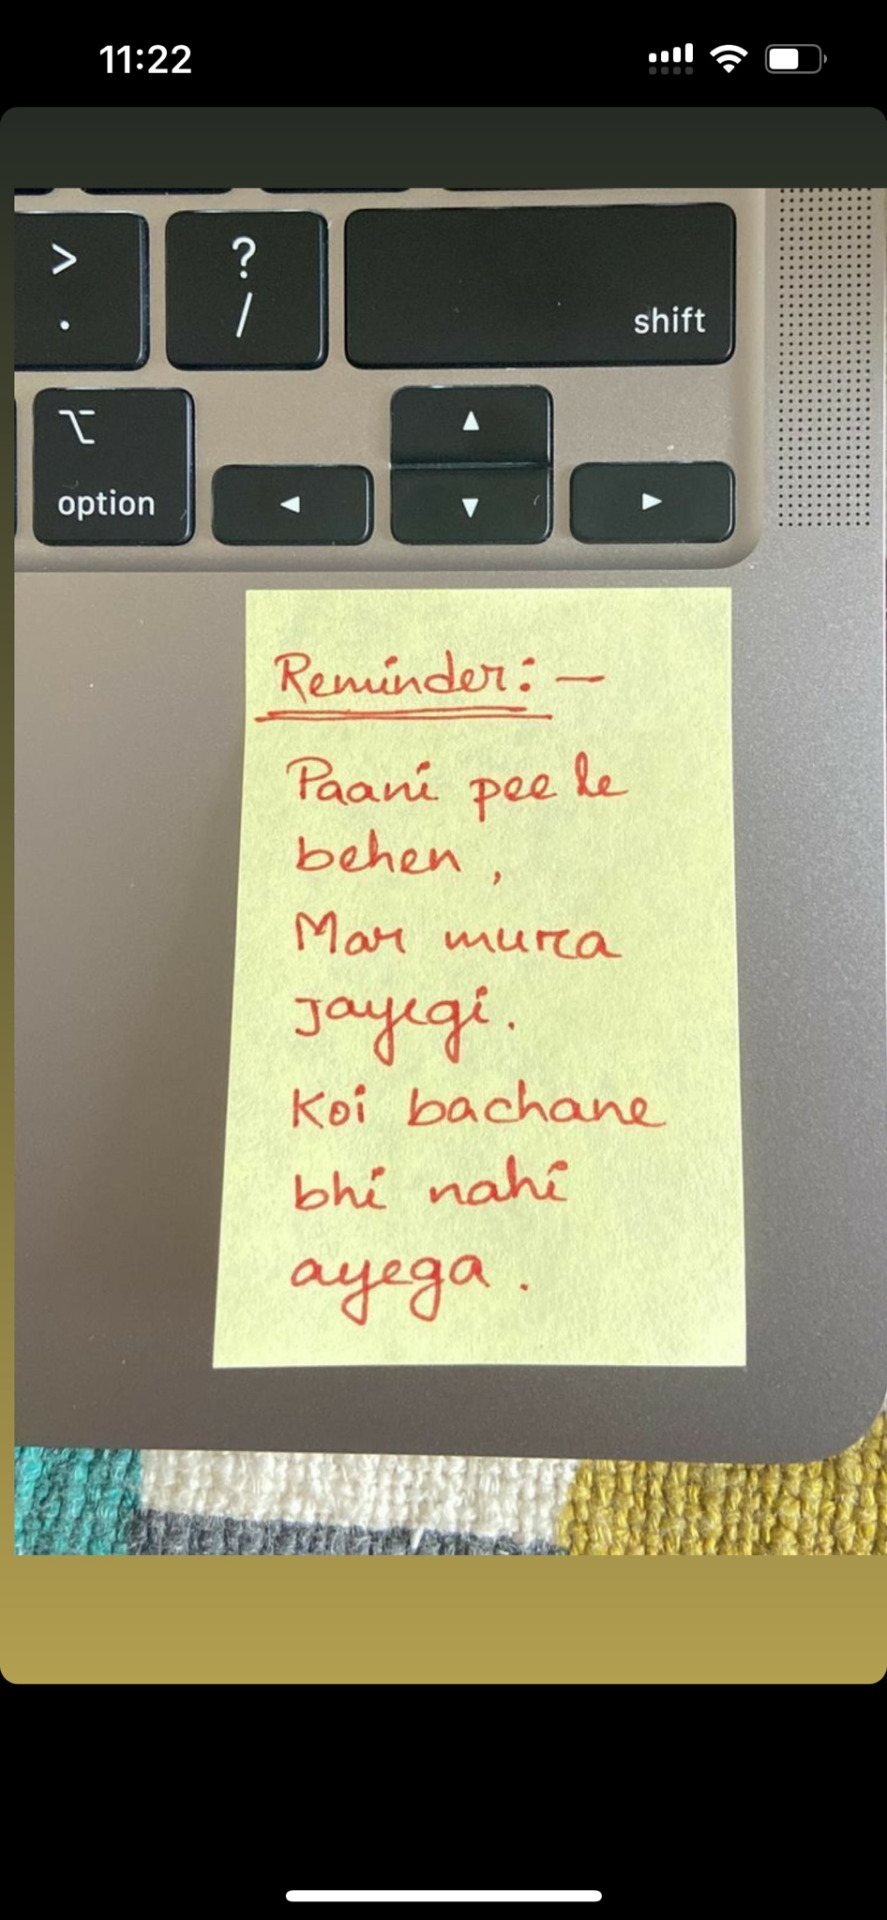 11:22
>
.
?
/
shift
option
Reminder:—
Paani pee le
behen,
Mar murra
jayegi.
Koi bachane
bhi nahi
ayega.